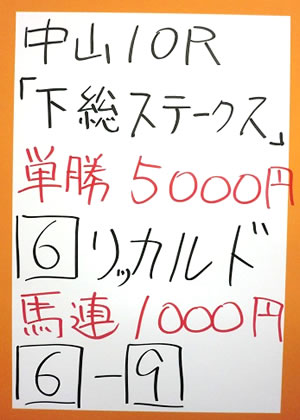 中山10R
「下総ステークス」
単勝 5000円
6 リッカルド
馬連 1000円
6-9